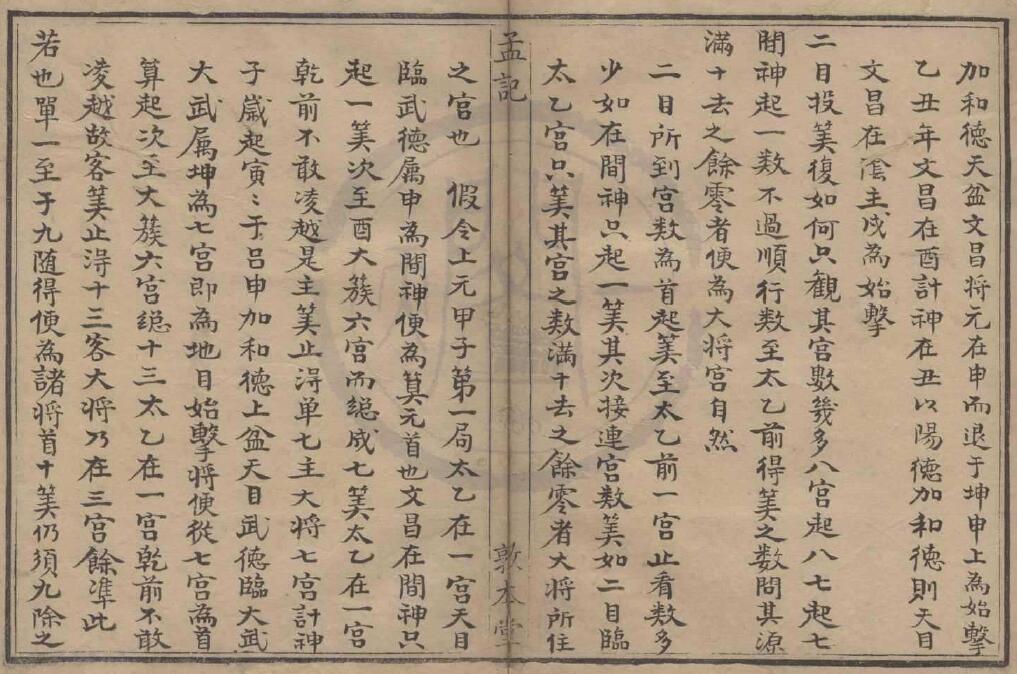 加和德天盆文昌将元在申而退于坤申上為始擊
乙丑年文昌在酉計神在丑以陽德加和德則天目
文昌在陰主戌為始擊
二目投筭復如何只觀其宫數幾多八宫起八七起七
間神起一数不過順行数至太乙前得筭之数問其源
滿十去之餘零者便為大将宫自然
二目所到宫数為首起筭至太乙前一宫止看数多
少如在間神只起一筭其次接連宫数筭如二目臨
太乙宫只筭其宫之数滿十去之餘零者大将所住
孟記
敦本堂
之宫也 假令上元甲子第一局太乙在一宫天目
臨武德属申為間神便為算元首也文昌在間神只
起一筭次至酉大簇六宫而緫成七筭太乙在一宫
乾前不敢凌越是主筭止得单七主大将七宫計神
子歲起寅〻于吕申加和德上盆天目武德臨大武
大武属坤為七宫即為地目始擊将便從七宫為首
算起次至大簇六宫緫十三太乙在一宫乾前不敢
凌越故客筭止淂十三客大将乃在三宫餘準此
若也單一至于九随得便為諸将首十筭仍須九除之